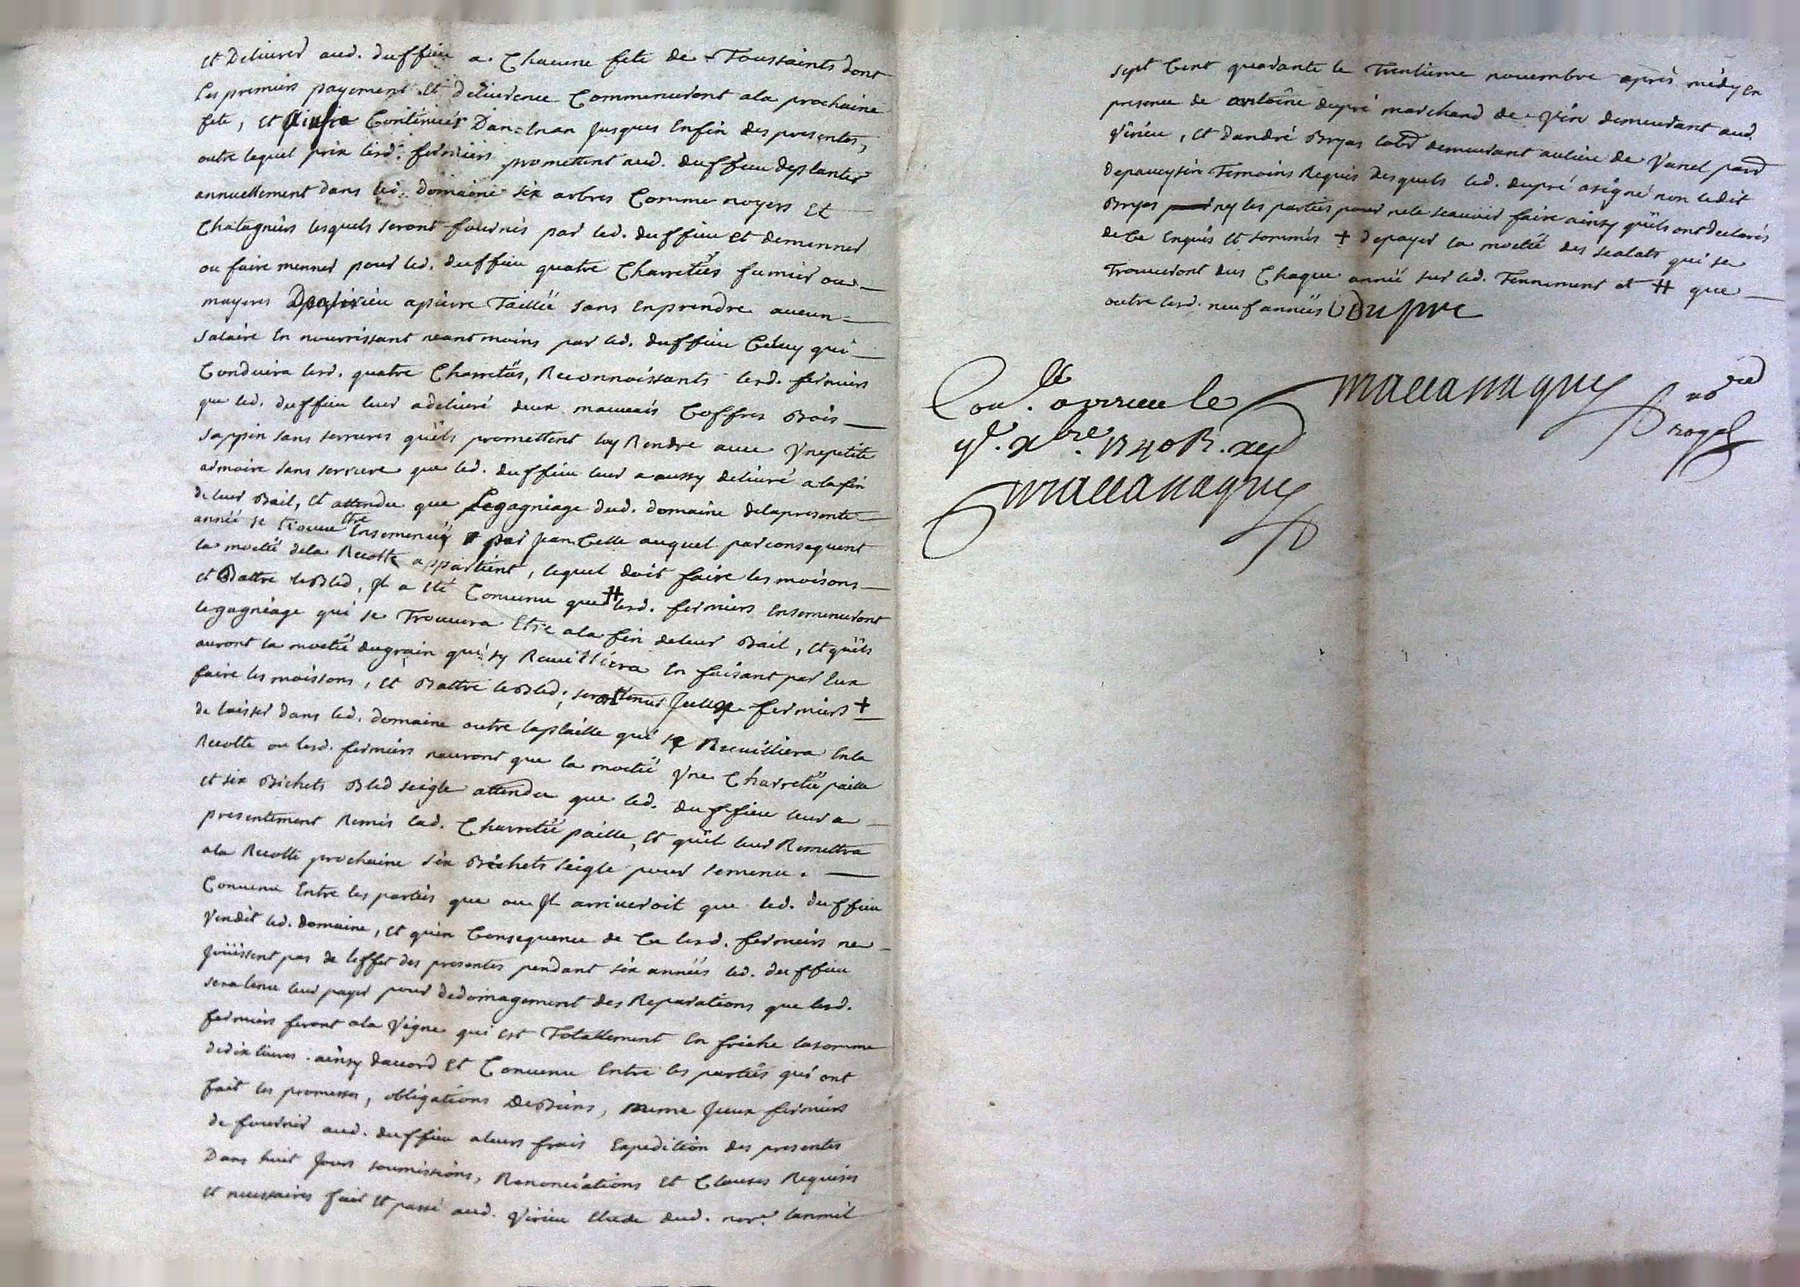 et Deliurer aud. duffieu a Chacune fete de Toussaints dont
Les premiers payement et deliurence Commenceront ala prochaine
fete, et Ainsi Continüer Dan=Enan Jusques Enfin des presentes,
outre lequel prix lesd. fermiers promettent aud. duffieu deplanter
annuellement dans led. domaine six arbres Comme noyers et
Chatagniers lesquels seront fournis par led. duffieu et demenner
ou faire menner pour led. duffieu quatre Charretées fumier ou
mayeres apierre Taillée sans Enprendre aucun
Salaire En nourrissant neantmoins par led. duffieu Celuy qui
Conduira lesd. quatre Charretées, Reconnoissants lesd. fermiers
que led. duffieu leur adeliuré deux mauuais Coffres Bois
sappin sans serrures quïls promettent luy Rendre auec Vnepetite
armoire sans serrure que led. duffieu leur a aussy deliuré a la fin
de leur Bail, et attendu que Legagnéage dud. domaine delapresente
année se trouue Ensemencé par Jean Celle auquel parconsequent
la moctié dela Recolte appartient, lequel doit faire les moisons
et Battre leBled, Jl a été Conuenu que # lesd. fermiers Ensemenceront
legagnéage qui se Trouuera Etre ala fin deleur Bail, et quïls
auront la moctié dugrain qui sy Recuilliera En faisant par Eux
faire les moissons, et Battre leBled; seront tenus Jceux fermiers +
de laisser dans led. domaine outre lapaille qui se Recuilliera Enla
Recolte ou lesd. fermiers nauront que la moctié Vne Charretée paille
et six Bichets Bled seigle attendu que led. duffieu leur a
presentement Remis lad. Charretée paille, et quïl leur Remettra
ala Recolte prochaine six Bichets seigle pour semence.
Conuenu Entre les parties que ou Jl arriueroit que led. duffieu
Vendit led. domaine, et quen Consequence de Ce lesd. fermiers ne
Joüissent pas de leffet des presentes pendant six années led. duffieu
sera tenu leur payer pour dedomagement des Reparations que lesd.
fermiers feront ala Vigne qui est Totallement En friche lasomme
dedix liures. ainsy daccord et Conuenu Entre les parties qui ont
fait les promesses, obligations DeBiens, meme Jceux fermiers
de fournir aud. duffieu aleurs frais Expedition des presentes
Dans huit Jours soumissions, Renonciations et Clauses Requises
et necessaires fait et passé aud. Virieu Etude dud. nore. Lanmil
sept Cent quarante le Trentieme nouembre après midy En
presence de antoine dupré marchand de Vin demeurant aud.
Virieu, et dandré Bryas labr demeurant aulieu de Vanel parr
Temoins Requis desquels led. dupré asigné non ledit
Bryas ny les parties pour nele scauoir faire ainsy quïls ont declarés
de Ce Enquis et sommés + depayer la moctié des sealats qui se
Trouueront dus Chaque année sur led. Tennement et # que
outre lesd. neuf années Dupre
Maccanaguy
nore
royal
Con.lé a virieu le
9e. Xbre. 1740 R.
Maccanaguy